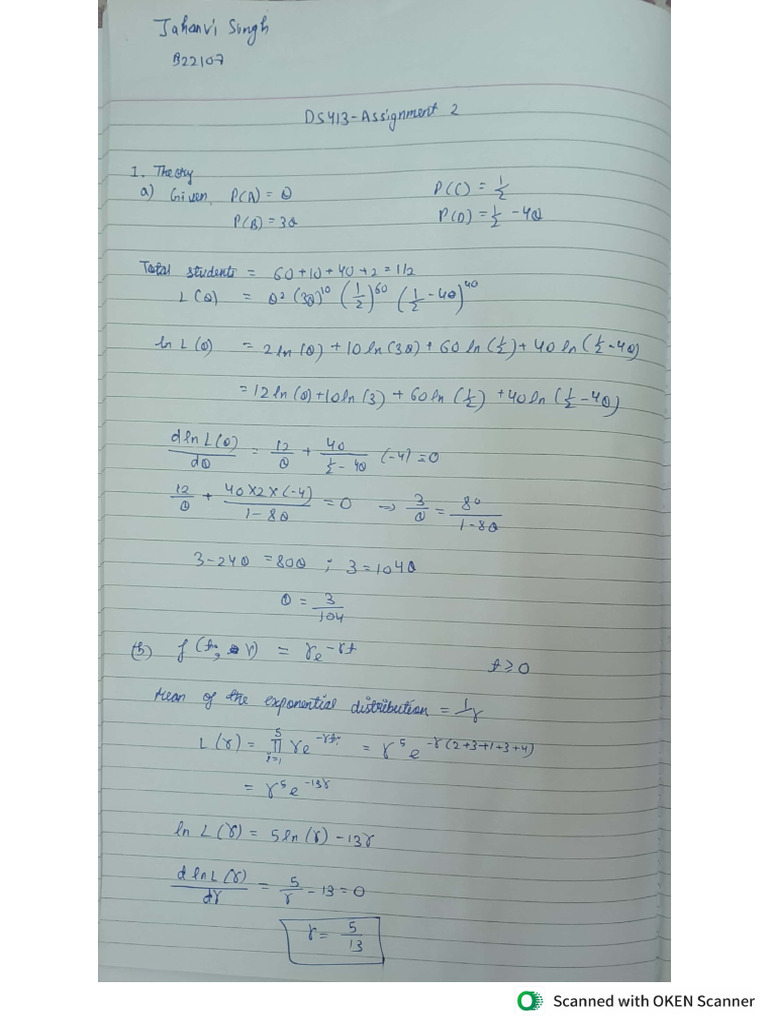 Jahanvi Singh
B22107
DS413-Assignment 2
1. Theory
a) Given, P(A) = θ P(C) = 1/2
P(B) = 3θ P(D) = 1/2 - 4θ
Total students = 60+10+40+2 = 112
L(θ) = θ² (3θ)¹⁰ (1/2)⁶⁰ (1/2 - 4θ)⁴⁰
ln L(θ) = 2ln(θ) + 10ln(3θ) + 60ln(1/2) + 40ln(1/2 - 4θ)
= 12ln(θ) + 10ln(3) + 60ln(1/2) + 40ln(1/2 - 4θ)
d ln L(θ)/dθ = 12/θ + 40/(1/2 - 4θ) (-4) = 0
12/θ + 40×2×(-4)/(1-8θ) = 0 → 3/θ = 80/(1-8θ)
3-24θ = 80θ ; 3 = 104θ
θ = 3/104
(b) f(t; γ) = γe^(-γt) t≥0
Mean of the exponential distribution = 1/γ
L(γ) = ∏_(i=1)^5 γe^(-γtᵢ) = γ⁵e^(-γ(2+3+1+3+4))
= γ⁵e^(-13γ)
ln L(γ) = 5ln(γ) - 13γ
d ln L(γ)/dγ = 5/γ - 13 = 0
γ = 5/13
Scanned with OKEN Scanner